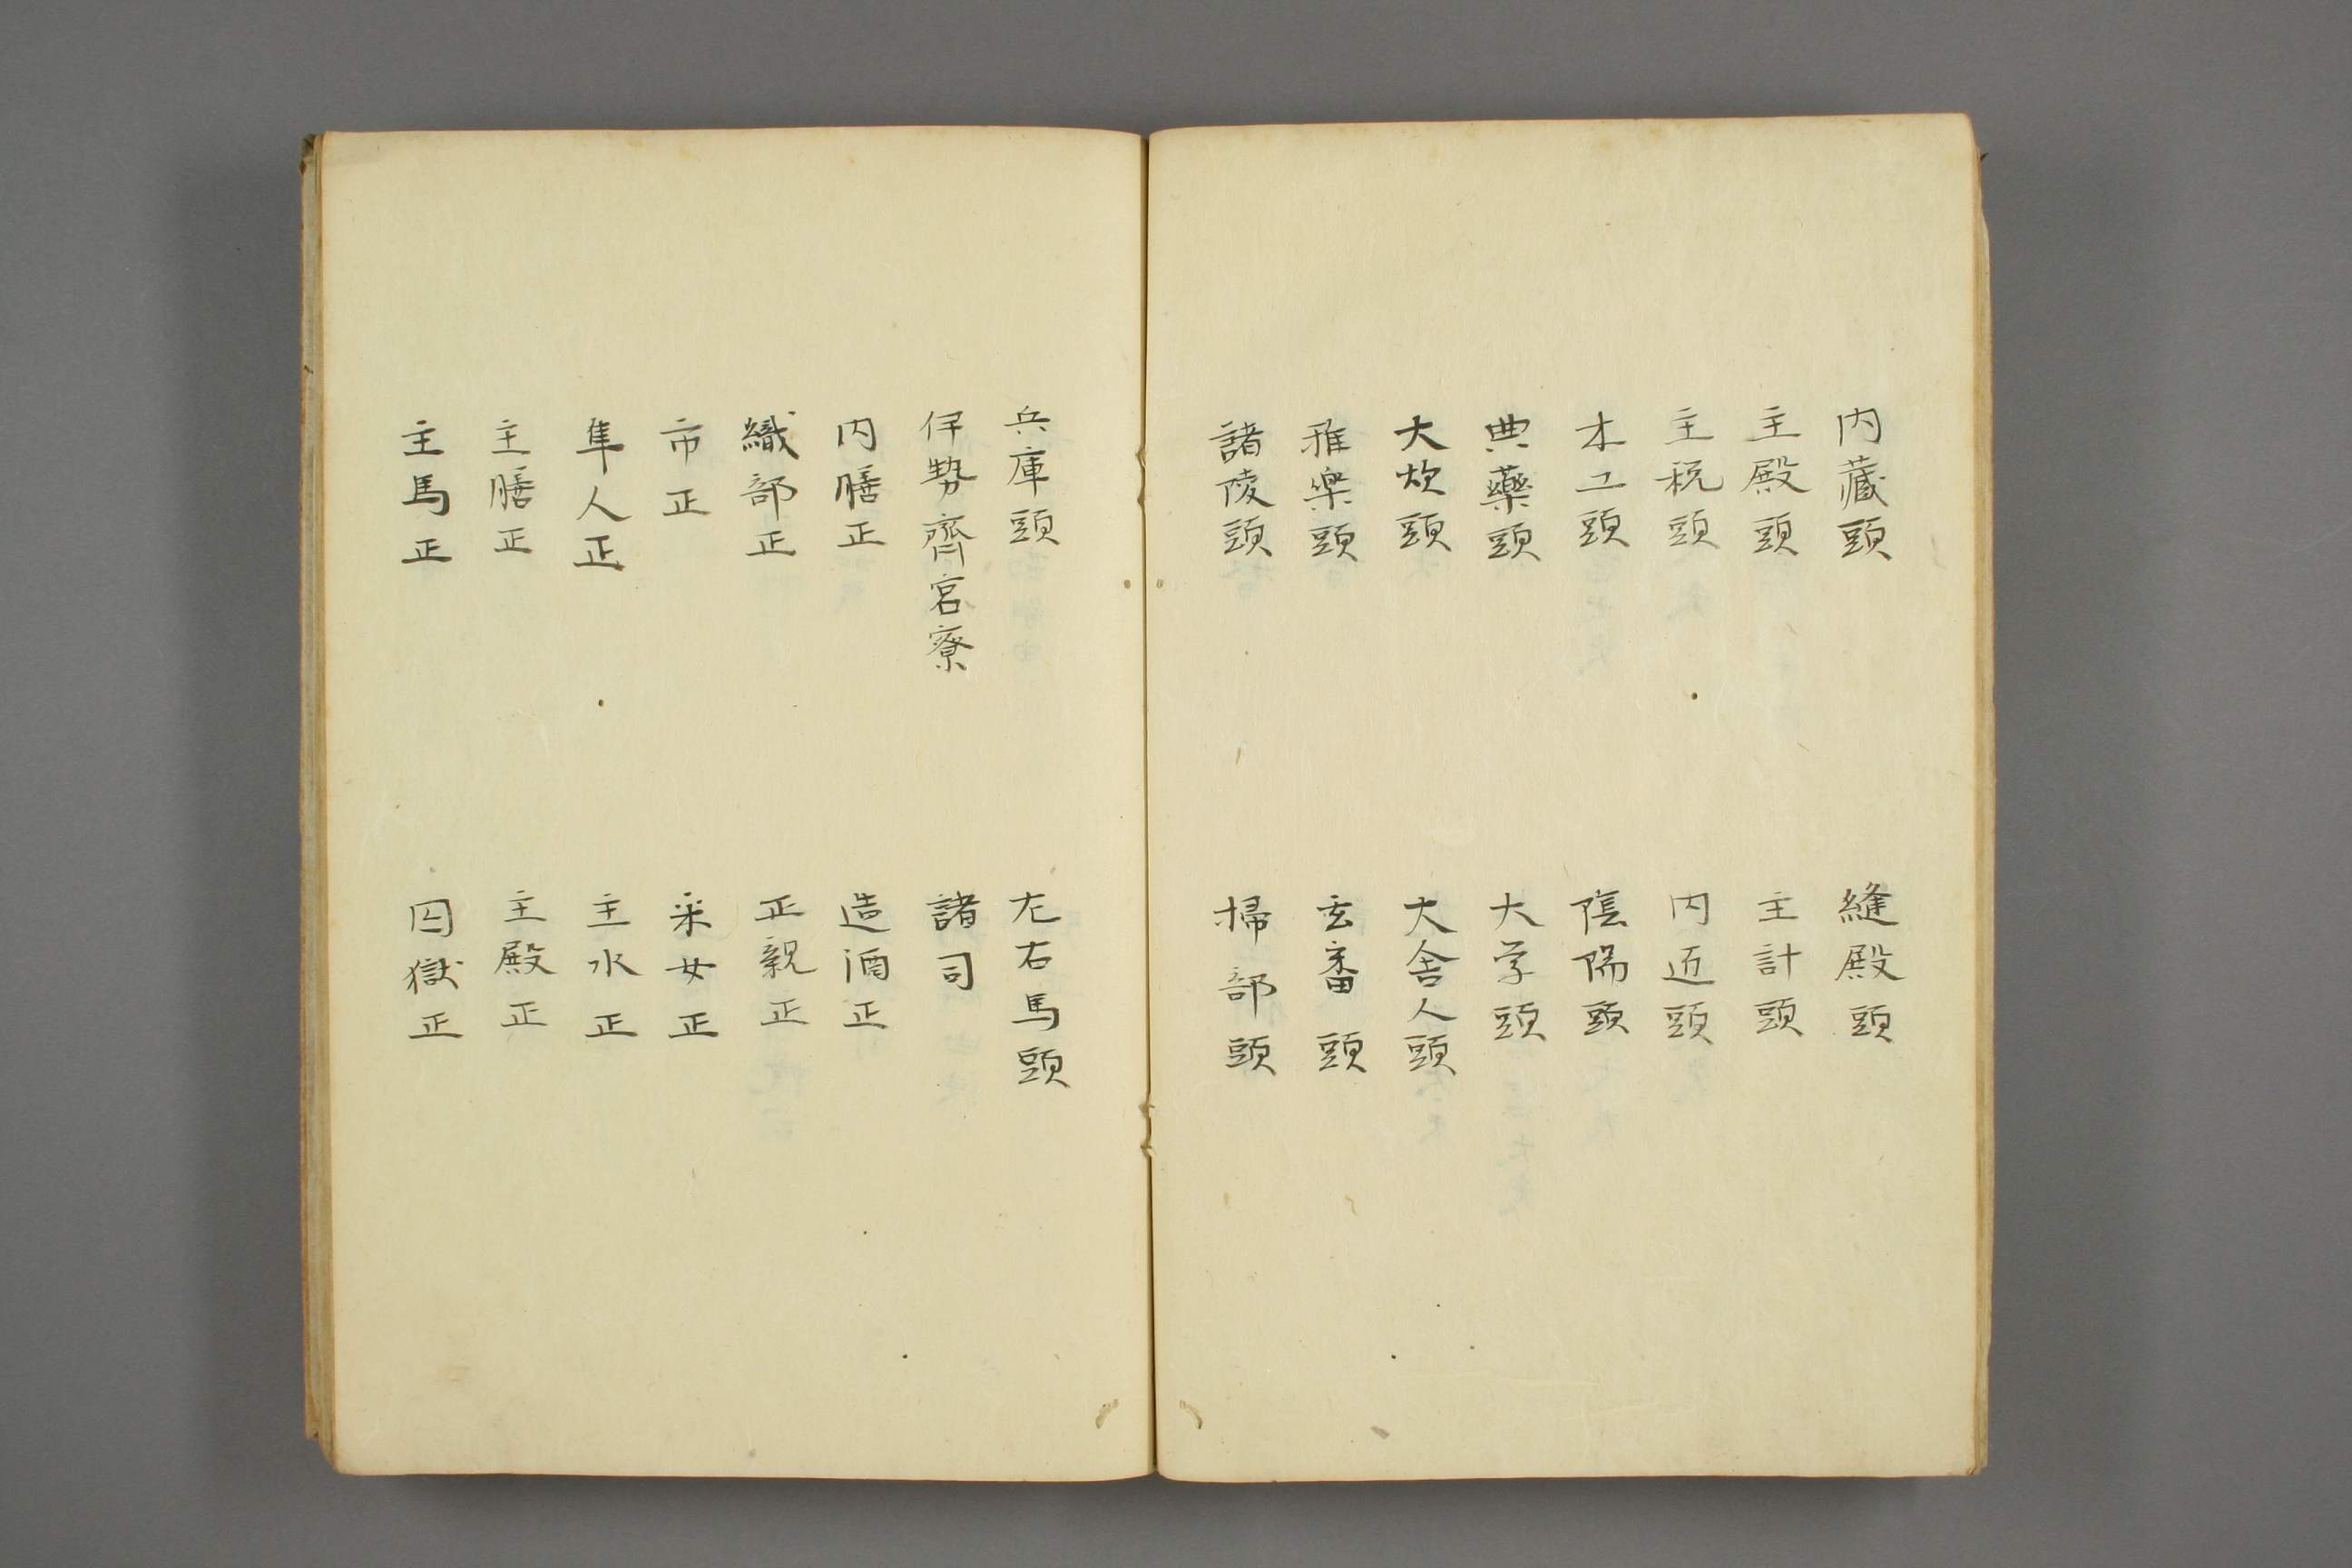 内藏頭
縫殿頭
主殿頭
主計頭
主税頭
内近頭
木工頭
陰陽頭
典藥頭
大学頭
大炊頭
大舎人頭
雅樂頭
玄蕃頭
諸陵頭
掃部頭
兵庫頭
左右馬頭
伊勢齊宮寮
諸司
内膳正
造酒正
織部正
正親正
市正
采女正
隼人正
主水正
主膳正
主殿正
主馬正
囚獄正